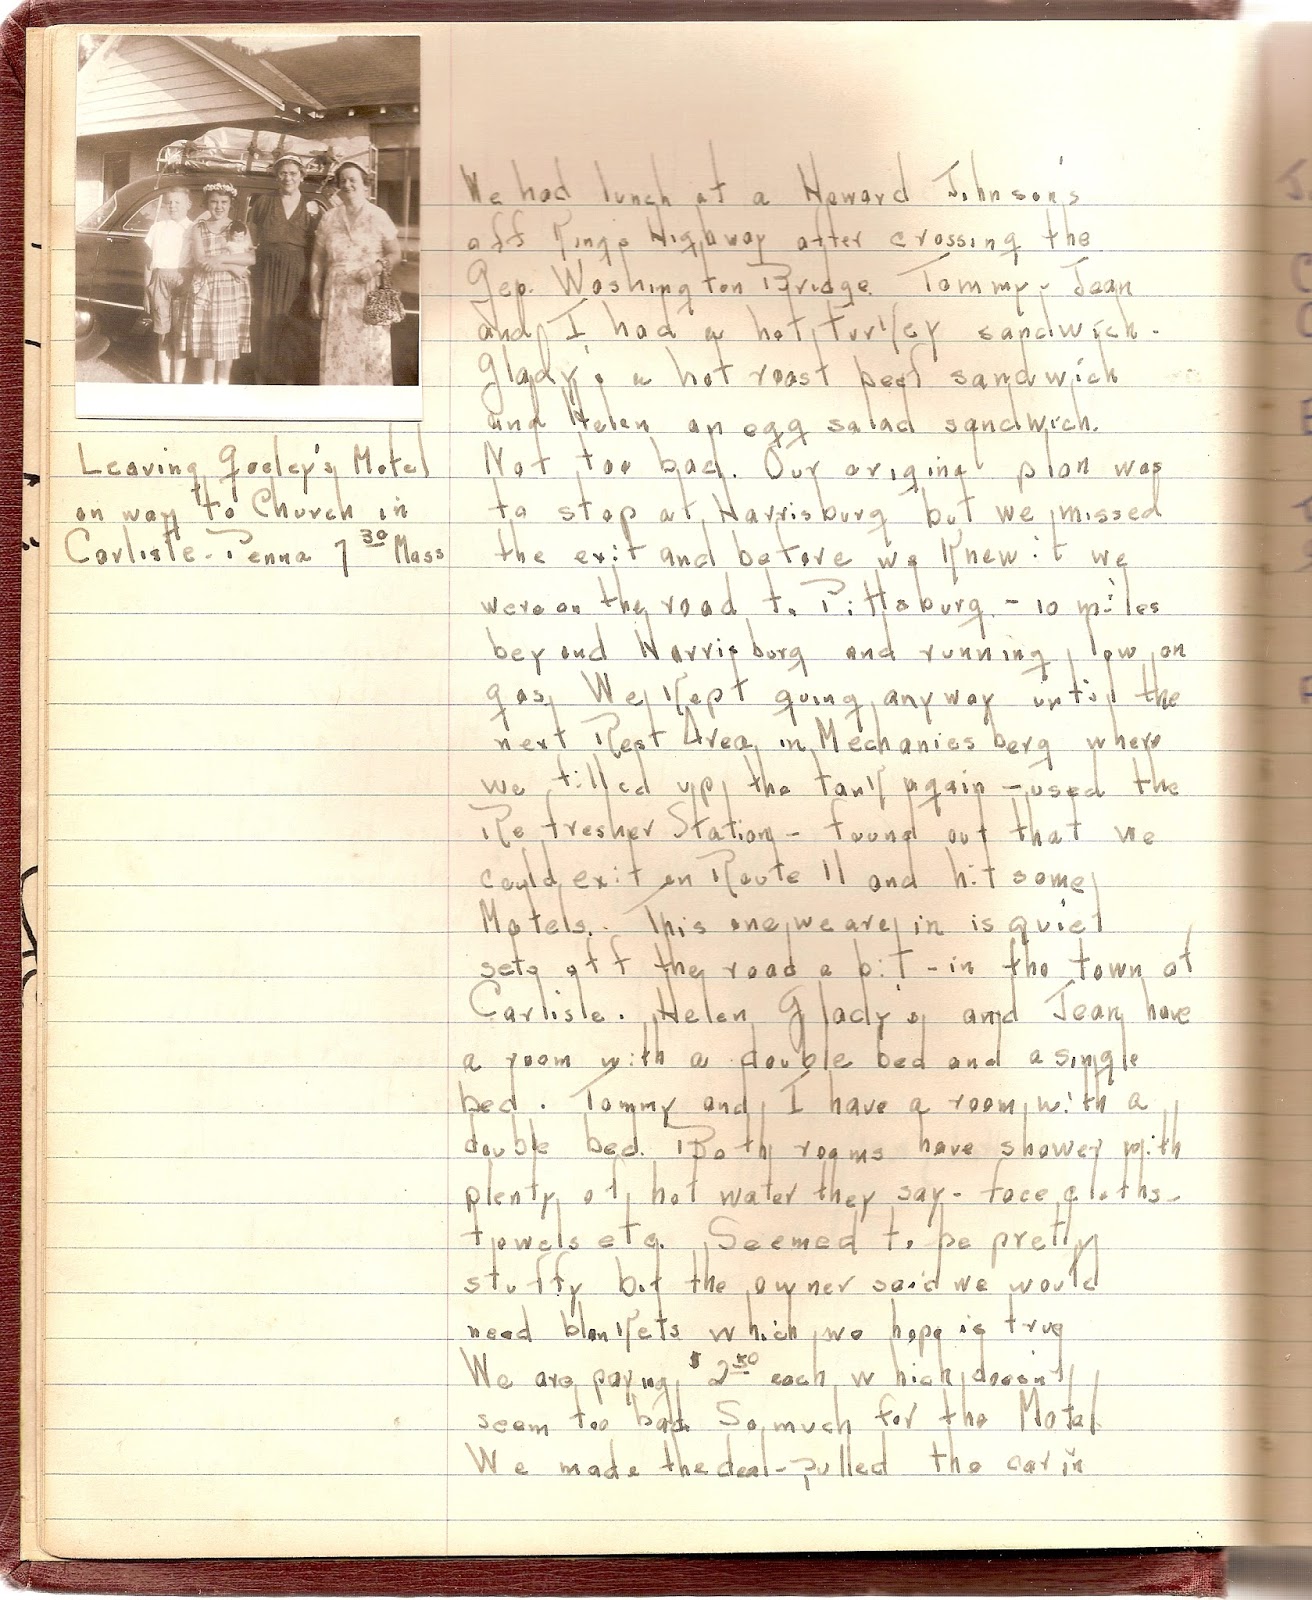 Leaving Gooley's Motel
on way to Church in
Carlisle - Penna 7 30 Mass
We had lunch at a Howard Johnson's
off Kings Highway after crossing the
Geo. Washington Bridge. Tommy - Jean
and I had a hot turkey sandwich -
Glady's a hot roast beef sandwich
and Helen an egg salad sandwich.
Not too bad. Our original plan was
to stop at Harrisburg but we missed
the exit and before we knew it we
were on the road to Pittsburg - 10 miles
beyond Harrisburg and running low on
gas. We kept going anyway until the
next Rest Area in Mechaniesberg where
we filled up the tank again - used the
Refresher Station - found out that we
could exit on Route 11 and hit some
Motels. This one we are in is quiet
sets off the road a bit - in the town of
Carlisle. Helen Glady's and Jean have
a room with a double bed and a single
bed. Tommy and I have a room with a
double bed. Both rooms have shower with
plenty of hot water they say - face cloths -
towels etc. Seemed to be pretty
stuffy but the owner said we would
need blankets which we hope is true
We are paying $2 50 each which doesn't
seem too bad. So much for the Motel
We made the deal - pulled the car in